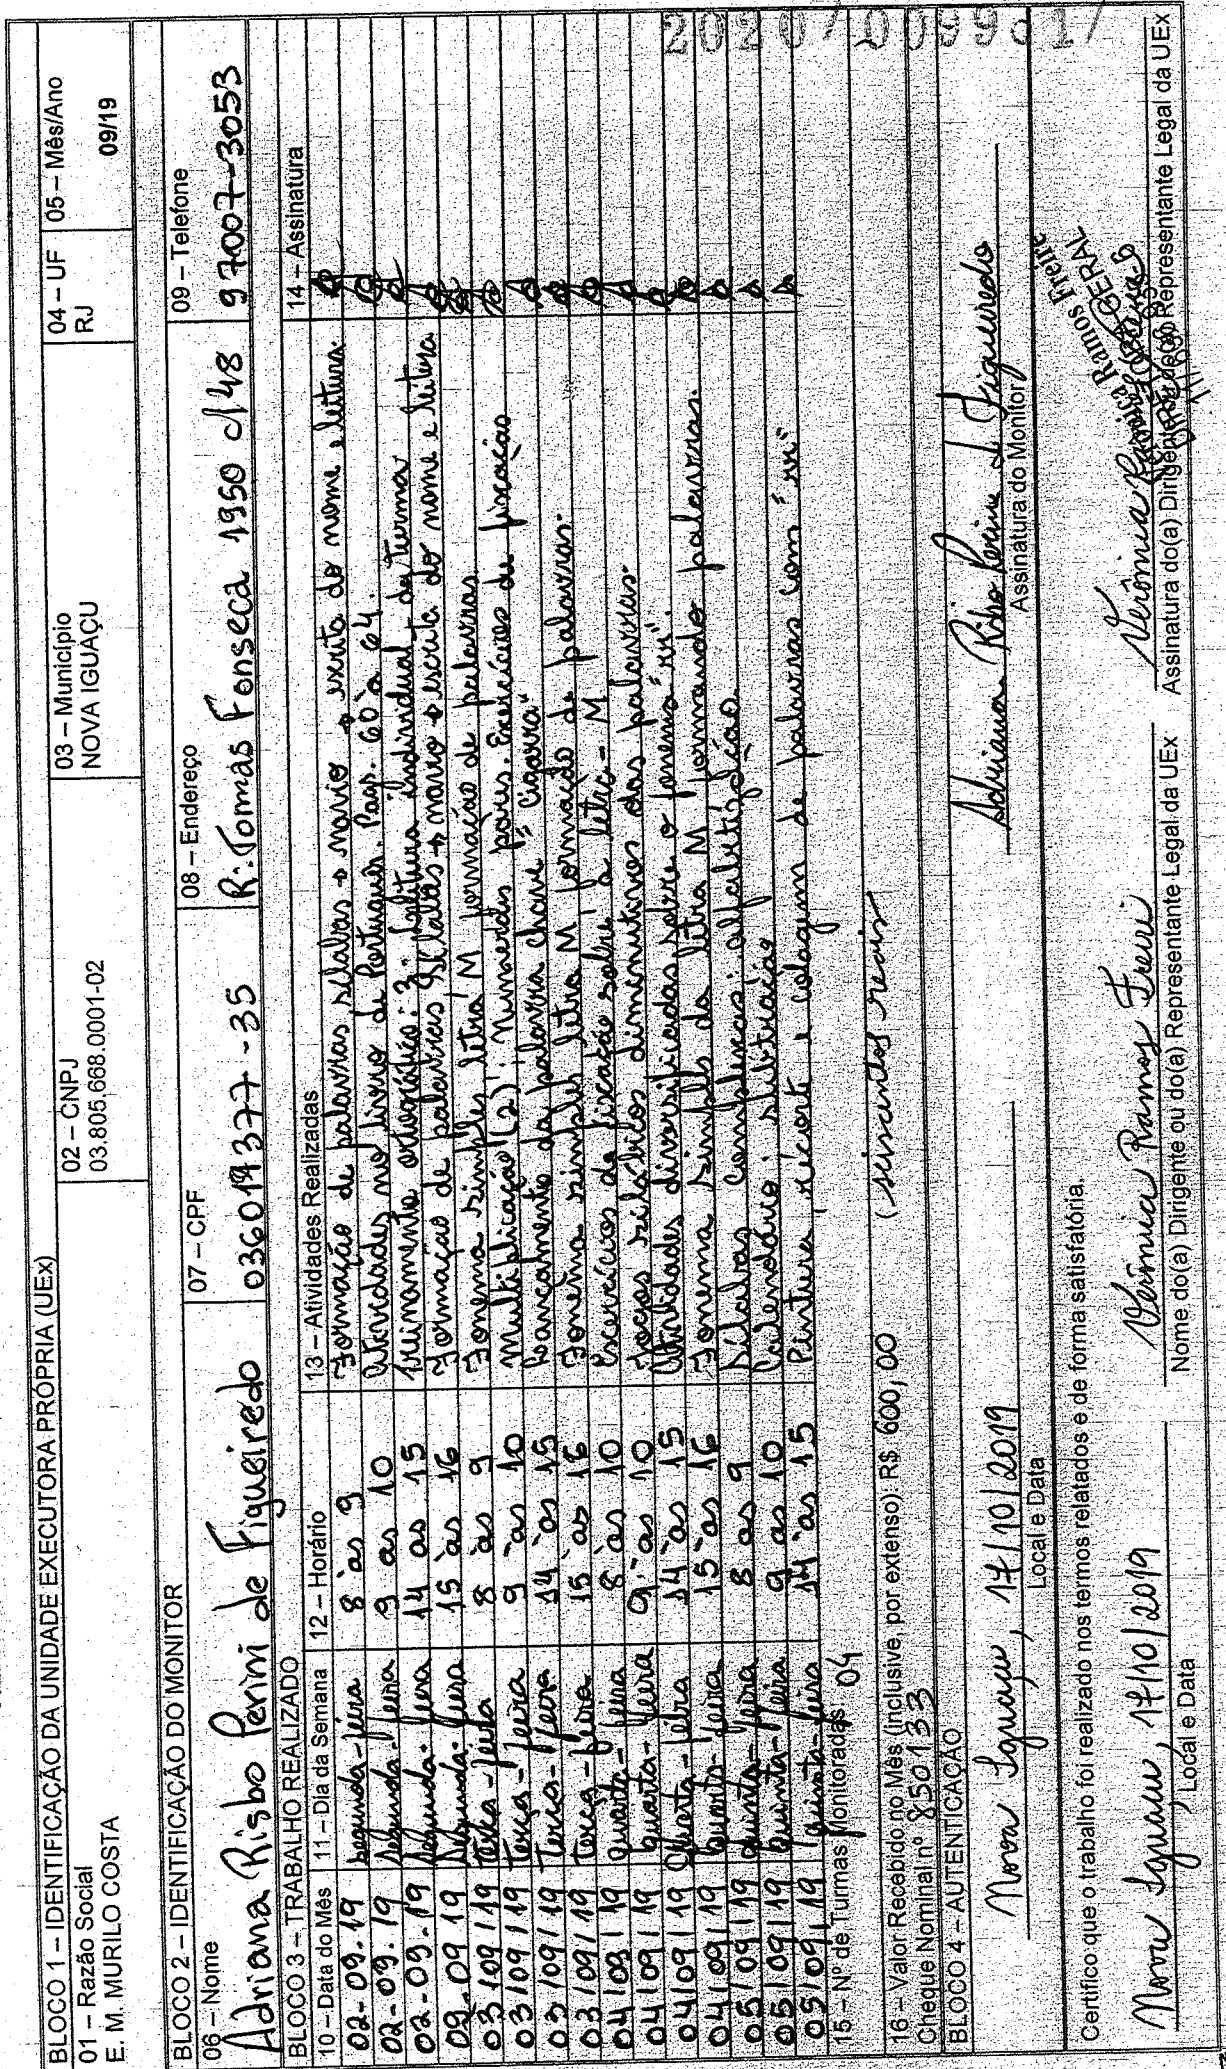 BLOCO 1 – IDENTIFICAÇÃO DA UNIDADE EXECUTORA PRÓPRIA (UEx)
01 – Razão Social
E. M. MURILO COSTA
02 – CNPJ
03.805.668.0001-02
03 – Município
NOVA IGUAÇU
04 – UF
RJ
05 – Mês/Ano
09/19
BLOCO 2 – IDENTIFICAÇÃO DO MONITOR
06 – Nome
Adriana Risbo Perini de Figueiredo
07 – CPF
036019377-35
08 – Endereço
R. Tomas Fonseca 1950 c/48
09 – Telefone
97007-3053
BLOCO 3 – TRABALHO REALIZADO
10 – Data do Mês 11 – Dia da Semana 12 – Horário 13 – Atividades Realizadas 14 – Assinatura
02-09-19 segunda-feira 8 às 9 Formação de palavras selabas → navio → escrita do nome e leitura.
02-09-19 segunda-feira 9 às 10 Atividades no livro de Português. Pag. 60 à 64.
02-09-19 segunda-feira 14 às 15 Treinamento ortográfico: 3- leitura individual da turma
02-09-19 segunda-feira 15 às 16 Formação de palavras selabas → navio → escrita do nome e leitura
03/09/19 terça-feira 8 às 9 Fonema simples letra M formação de palavras.
03/09/19 terça-feira 9 às 10 Multiplicação (2). Numerais pares. Exercícios de fixação
03/09/19 terça-feira 14 às 15 Lançamento da palavra chave "Cigarra"
03/09/19 terça-feira 15 às 16 Fonema simples letra M formação de palavras.
04/09/19 quarta-feira 8 às 10 Exercícios de fixação sobre a letra - M
04/09/19 quarta-feira 9 às 10 Jogos silábicos diminutivos das palavras.
04/09/19 quarta-feira 14 às 15 Atividades diversificadas sobre o fonema "rr".
04/09/19 quarta-feira 15 às 16 Fonema simples da letra M formando palavras.
05/09/19 quinta-feira 8 às 9 Sílabas complexas: alfabetização
05/09/19 quinta-feira 9 às 10 Calendário: subtração
05/09/19 quinta-feira 14 às 15 Pintura, recorte e colagem de palavras com "rr"
15 – Nº de Turmas Monitoradas 04
16 – Valor Recebido no Mês (inclusive, por extenso) R$ 600,00 (seiscentos reais
Cheque Nominal nº 850133
BLOCO 4 – AUTENTICAÇÃO
Nova Iguaçu, 17/10/2019
Local e Data
Assinatura do Monitor
Certifico que o trabalho foi realizado nos termos relatados e de forma satisfatória.
Nova Iguaçu, 17/10/2019
Local e Data
Verônica Ramos Freire
Nome do(a) Dirigente ou do(a) Representante Legal da UEx
Assinatura do(a) Dirigente ou do(a) Representante Legal da UEx